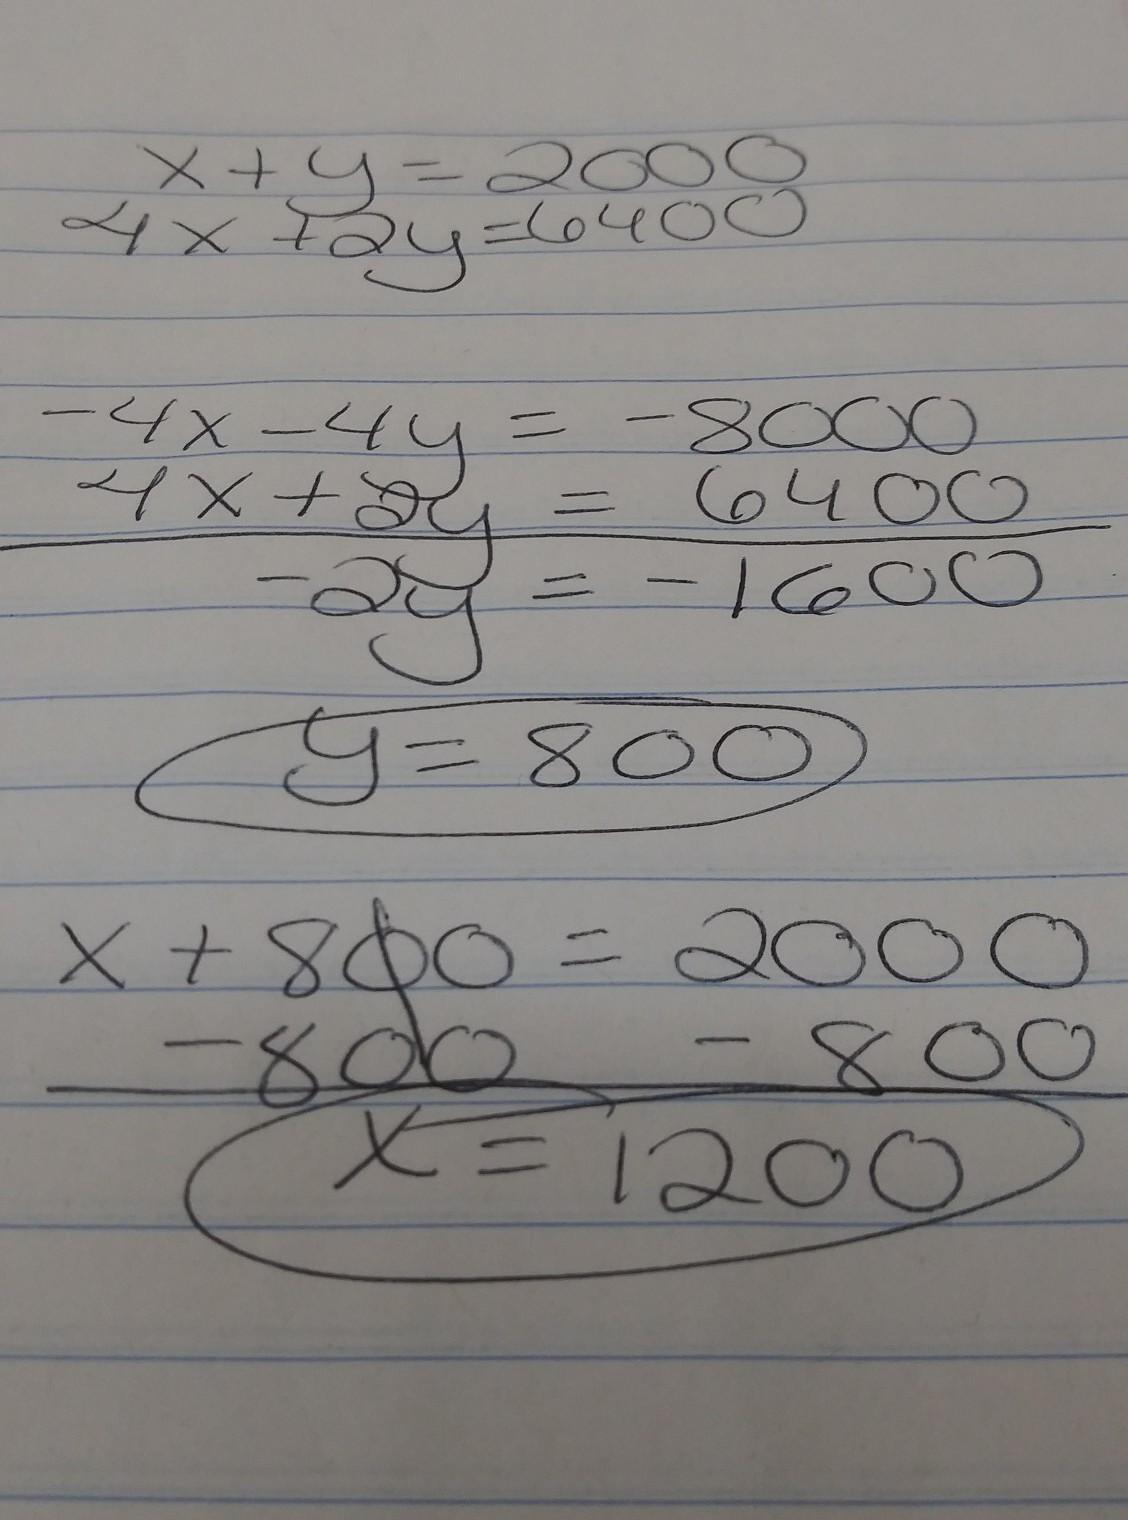 x + y = 2000
4x + 2y = 6400
-4x - 4y = -8000
4x + 2y = 6400
-2y = -1600
y = 800
x + 800 = 2000
-800 - 800
x = 1200